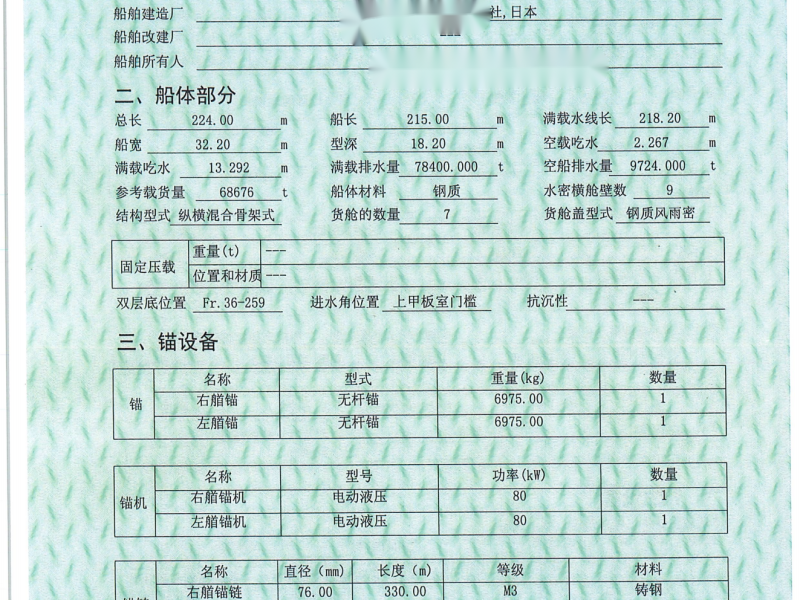 船舶建造厂 社,日本
船舶改建厂 ---
船舶所有人
二、船体部分
总长 224.00 m 船长 215.00 m 满载水线长 218.20 m
船宽 32.20 m 型深 18.20 m 空载吃水 2.267 m
满载吃水 13.292 m 满载排水量 78400.000 t 空船排水量 9724.000 t
参考载货量 68676 t 船体材料 钢质 水密横舱壁数 9
结构型式 纵横混合骨架式 货舱的数量 7 货舱盖型式 钢质风雨密
固定压载 重量(t) ---
位置和材质 ---
双层底位置 Fr.36-259 进水角位置 上甲板室门槛 抗沉性 ---
三、锚设备
锚 名称 型式 重量(kg) 数量
右艏锚 无杆锚 6975.00 1
左艏锚 无杆锚 6975.00 1
锚机 名称 型号 功率(kW) 数量
右艏锚机 电动液压 80 1
左艏锚机 电动液压 80 1
名称 直径（mm） 长度（m） 等级 材料
右艏锚链 76.00 330.00 M3 铸钢